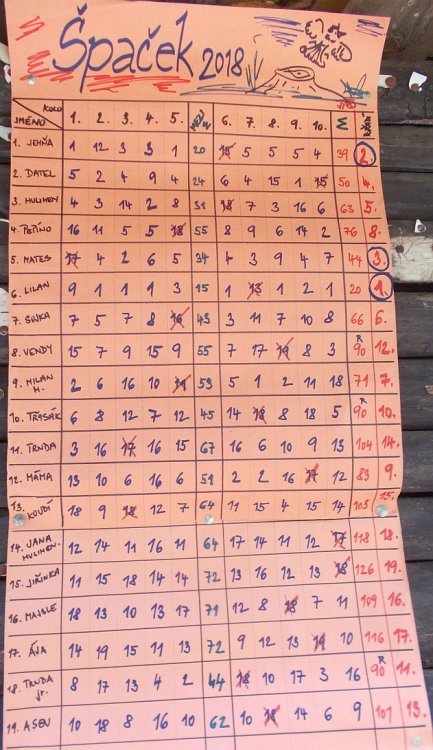 Špaček 2018
JMÉNO KOLO 1. 2. 3. 4. 5. 6. 7. 8. 9. 10. Σ
1. JEHŇA 1 12 3 3 1 20 15 5 5 5 4 39 2.
2. DATEL 5 2 4 9 4 24 6 4 15 1 15 50 4.
3. MULIHEN 4 3 14 2 8 31 18 7 3 16 6 63 5.
4. PEŘINO 16 11 5 5 18 55 8 9 6 14 2 76 8.
5. MATES 17 4 2 6 5 34 4 3 9 4 7 44 3.
6. LILAN 9 1 1 1 3 15 1 13 1 2 1 20 1.
7. SUKA 7 5 7 8 16 43 3 11 7 10 8 66 6.
8. VENDY 15 7 9 15 9 55 7 17 19 8 3 R 90 12.
9. MILAN M. 2 6 16 10 19 53 5 1 2 11 18 71 7.
10. TRASÁK 6 8 12 7 12 45 14 18 8 18 5 R 90 10.
11. TRNDA 3 16 17 16 15 67 16 6 10 9 13 104 14.
12. MÁMA 13 10 6 16 6 51 2 2 16 17 12 83 9.
13. KOUDÍ 18 9 18 12 7 64 11 15 4 15 14 105 15.
14. JANA MULIHEN. 12 14 11 16 11 64 17 14 11 12 17 118 18.
15. JIŘINKA 11 15 18 14 14 72 13 16 12 13 18 126 19.
16. MAJSLE 18 13 10 13 17 71 12 8 18 7 11 109 16.
17. ÁJA 14 19 15 11 13 72 9 12 13 19 10 116 17.
18. TRNDA jr. 8 17 13 4 2 44 18 10 17 3 16 R 90 11.
19. ASEN 10 18 8 16 10 62 10 18 14 6 9 101 13.